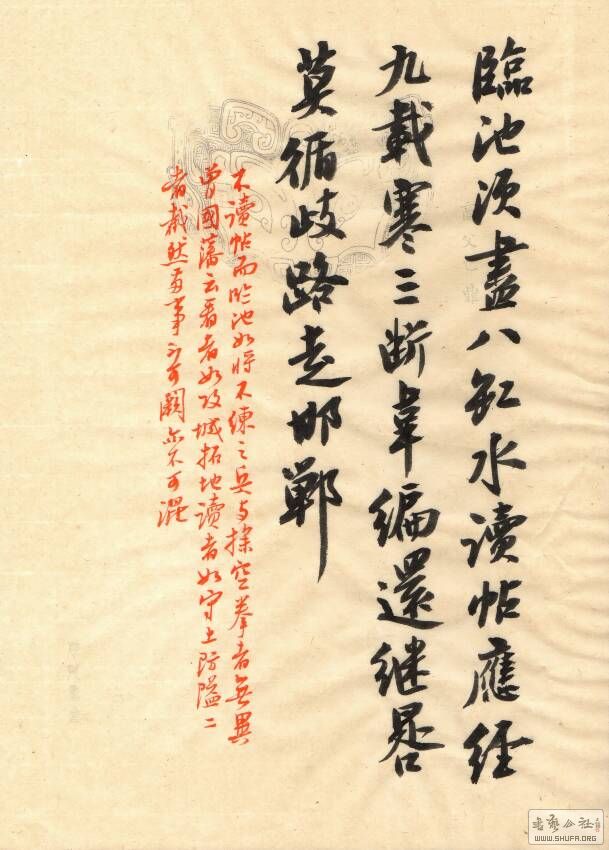 臨池須盡八缸水讀帖應經
九載寒三斷韋編還繼晷
莫循歧路走邯鄲
不讀帖而臨池如將不練之兵與操空拳者無異
曾國藩云看者如攻城拓地讀者如守土防隘二
者截然兩事不可闕亦不可混
書藝公社
WWW.SHUFA.ORG